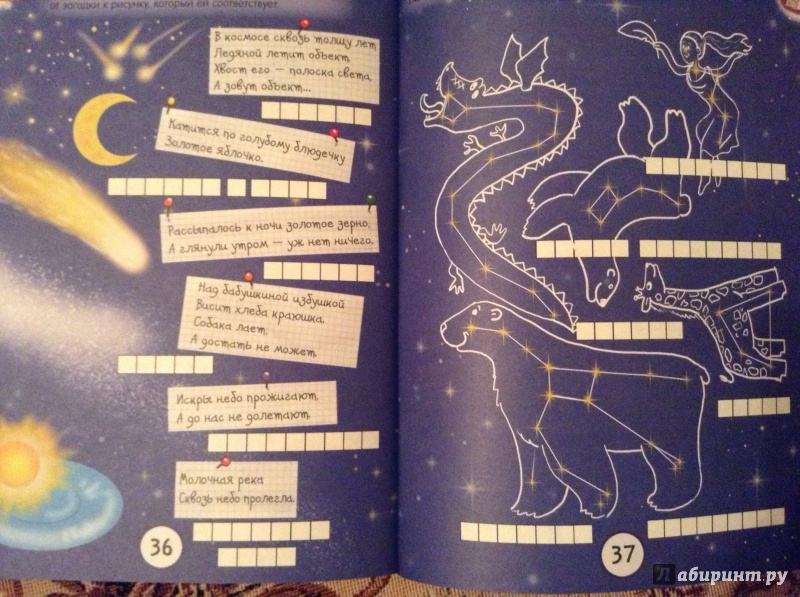 от загадки к рисунку, который ей соответствует.
В космосе сквозь толщу лет
Ледяной летит объект.
Хвост его — полоска света,
А зовут объект...
Катится по голубому блюдечку
Золотое яблочко.
Рассыпалось к ночи золотое зерно,
А глянули утром — уж нет ничего.
Над бабушкиной избушкой
Висит хлеба краюшка.
Собака лает,
А достать не может.
Искры небо прожигают,
А до нас не долетают.
Молочная река
Сквозь небо пролегла.
36
37
Лабиринт.ру